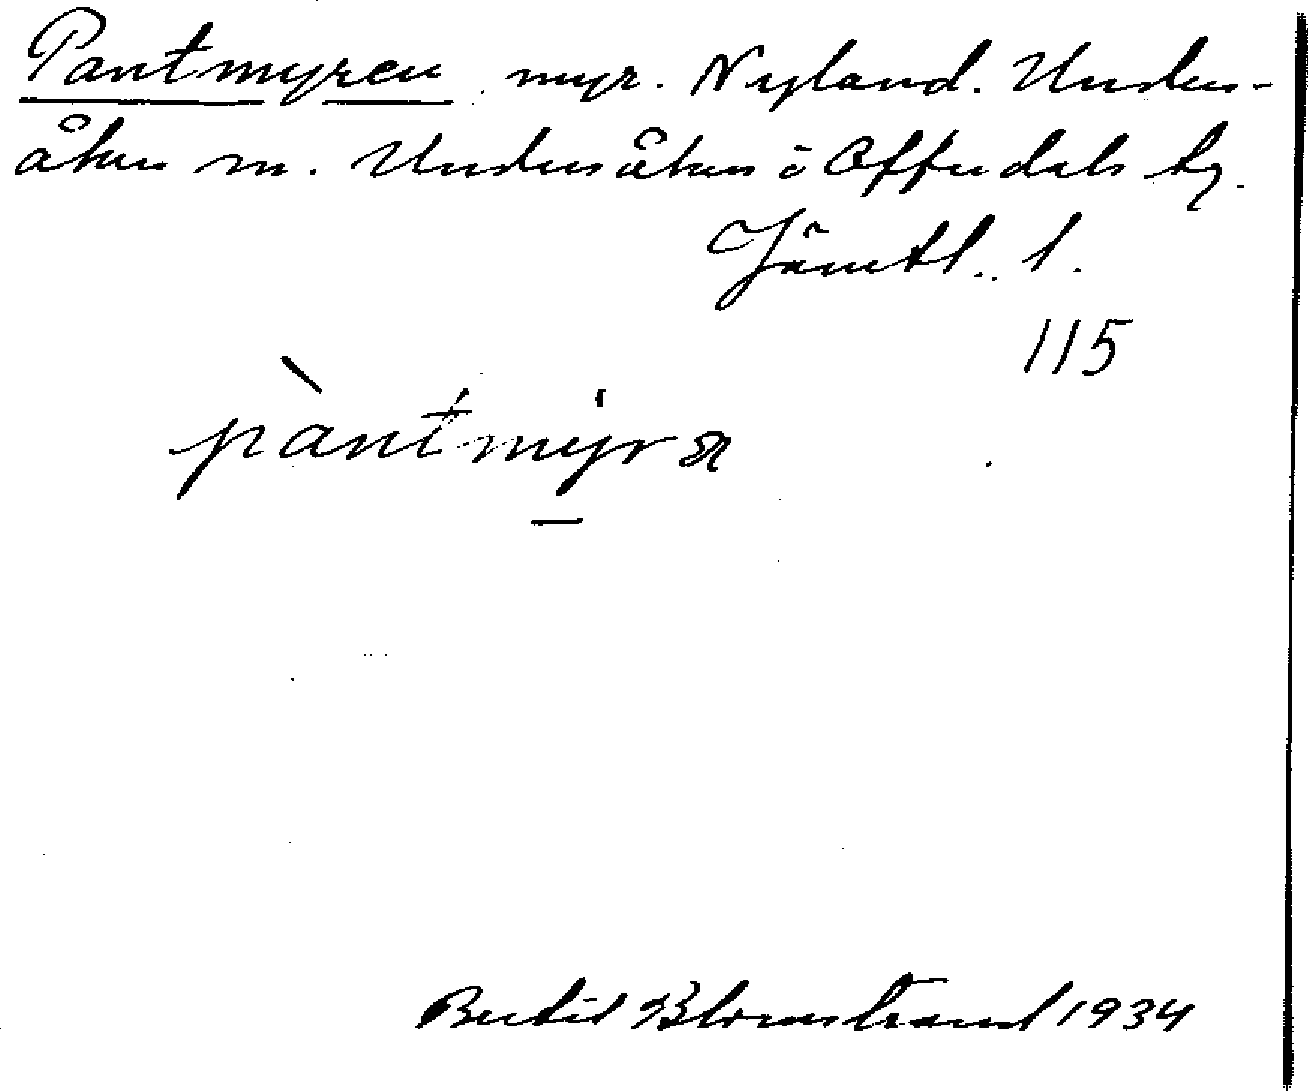 Pantmyren myr. Nyland. Unders-
åkers sn. Undersåkers o Offerdals tg.
Jämtl. l.
115
pàntmyra
Bertil Blomstrand 1934